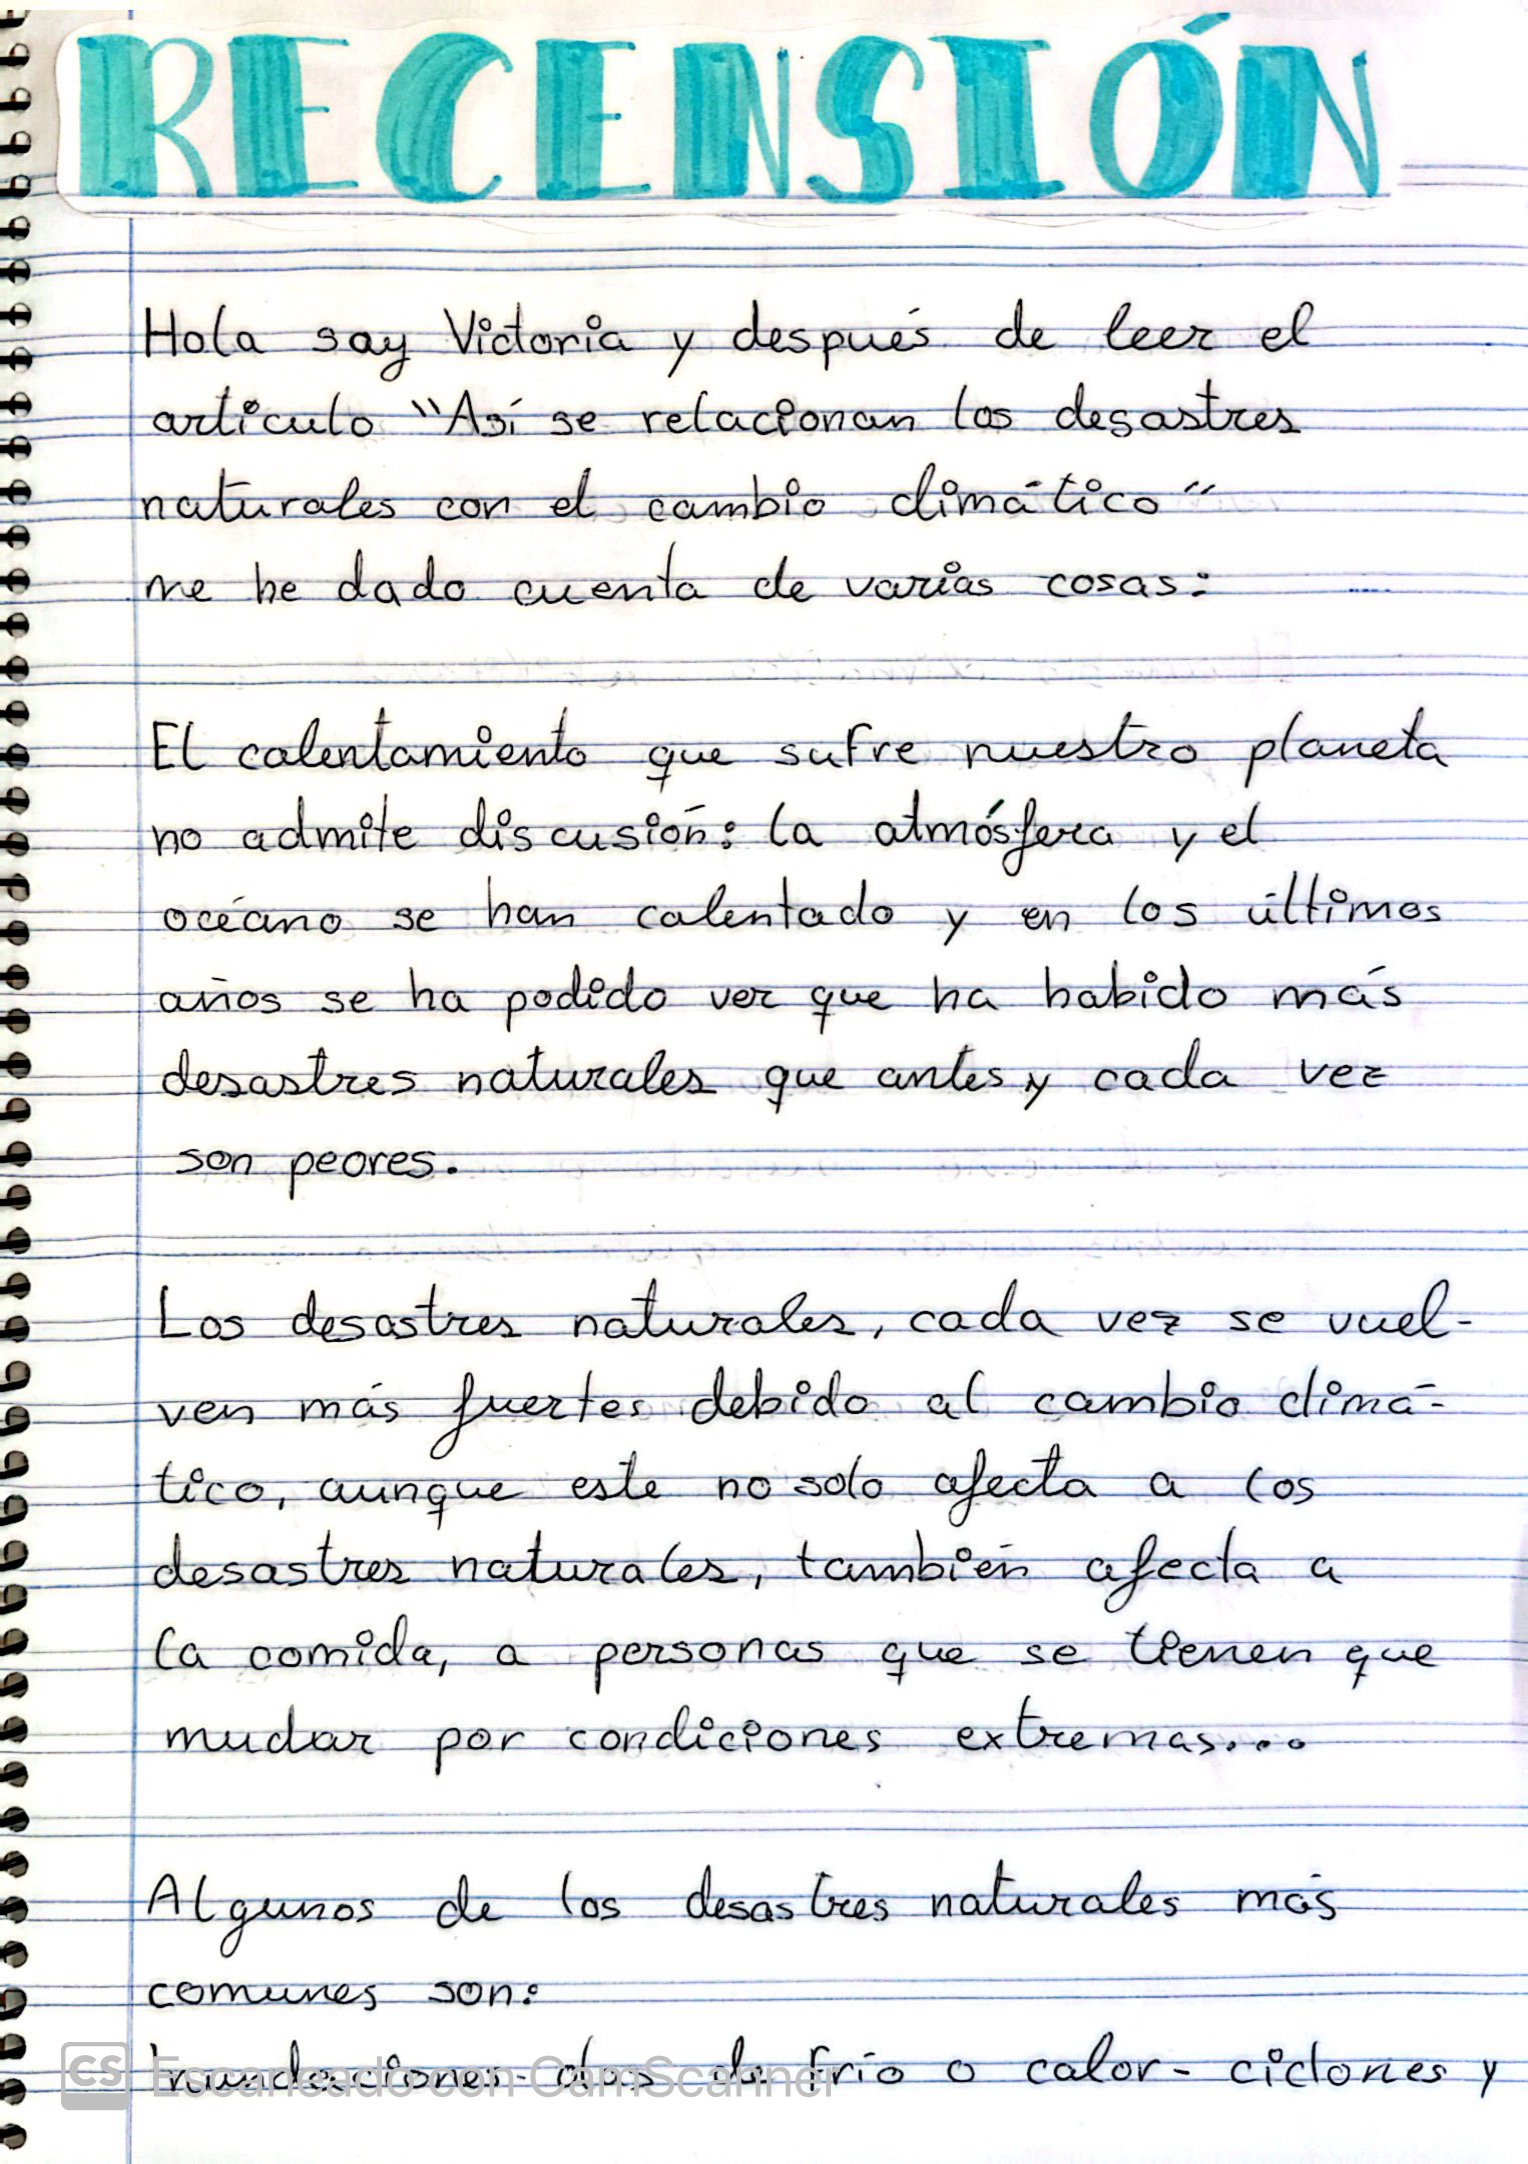 RECENSIÓN
Hola soy Victoria y después de leer el
artículo "Así se relacionan los desastres
naturales con el cambio climático"
me he dado cuenta de varias cosas:
El calentamiento que sufre nuestro planeta
no admite discusión: la atmósfera y el
océano se han calentado y en los últimos
años se ha podido ver que ha habido más
desastres naturales que antes y cada vez
son peores.
Los desastres naturales, cada vez se vuel-
ven más fuertes debido al cambio climá-
tico, aunque este no solo afecta a los
desastres naturales, también afecta a
la comida, a personas que se tienen que
mudar por condiciones extremas...
Algunos de los desastres naturales más
comunes son:
Inundaciones - olas de frío o calor - ciclones y
CS Escaneado con CamScanner